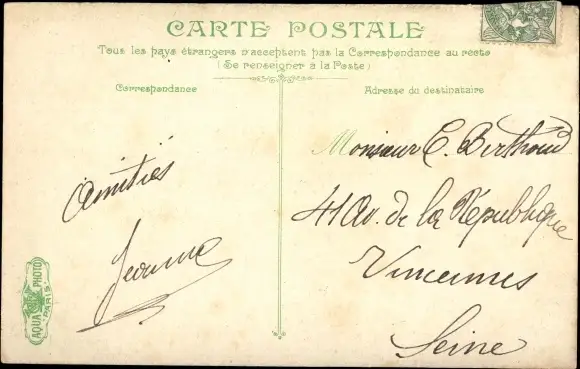 CARTE POSTALE
Tous les pays étrangers n'acceptent pas la Correspondance au recto
(Se renseigner à la Poste)
Correspondance
Adresse du destinataire
Monsieur C. Berthoud
41 Av. de la République
Vincennes
Seine
Amitiés
Jeanne
AQUA PHOTO
PARIS